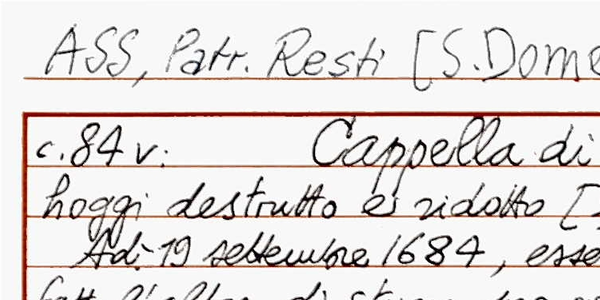 ASS, Patr. Resti [S. Dome
c. 84 v: Cappella di
hoggi destrutto e ridotto [
Adi 19 settembre 1684, esse
fatt l'altar di